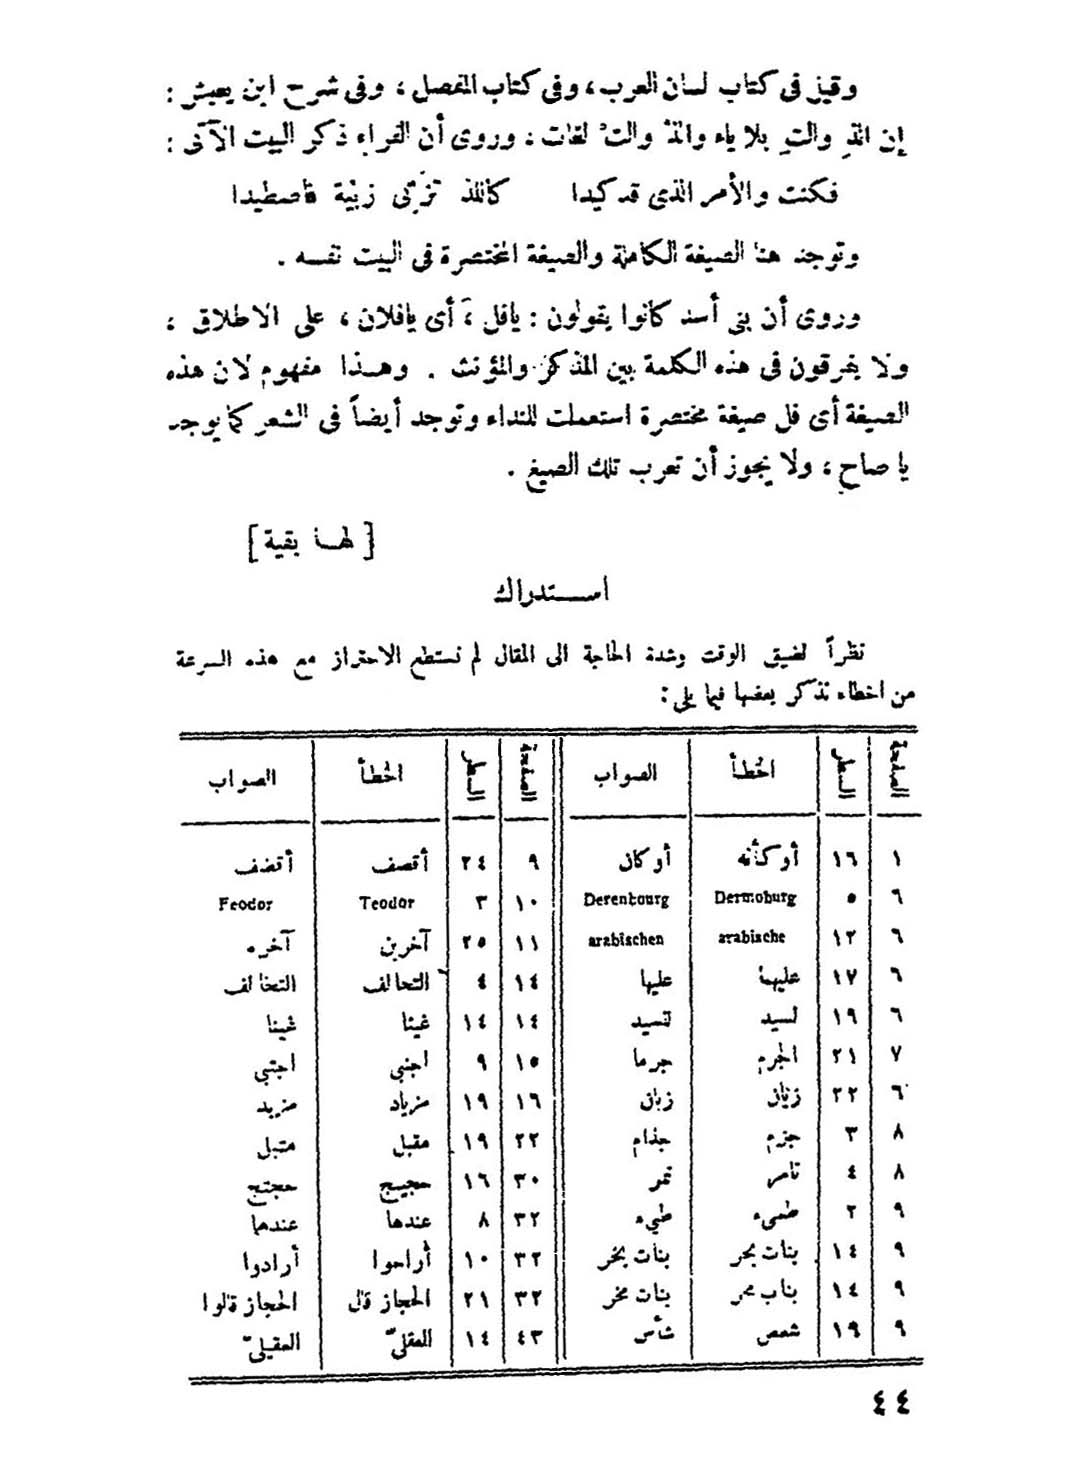 وقيل فى كتاب لسان العرب، وفى كتاب المفصل، وفى شرح ابن يعيش :
إن الذِ والتِ بلا ياء والذْ والتْ لغات : وروى أن الفراء ذكر البيت الآتى :
فكنت والأمر الذى قد كيدا كاللذ تزبّى زبْية فاصطيدا
وتوجد هنا الصيغة الكاملة والصيغة المختصرة فى البيت نفسه .
وروى أن بنى أسد كانوا يقولون : يافل ، أى يافلان ، على الاطلاق ،
ولا يفرقون فى هذه الكلمة بين المذكر والمؤنث . وهذا مفهوم لان هذه
الصيغة أى فل صيغة مختصرة استعملت للنداء وتوجد أيضاً فى الشعر كما يوجد
يا صاحِ ، ولا يجوز أن تعرب تلك الصيغ .
[ لها بقية ]
استدراك
نظراً لضيق الوقت وشدة الحاجة الى المقال لم نستطع الاحتراز مع هذه السرعة
من اخطاء نذكر بعضها فيما يلى :
الصفحة السطر الخطأ الصواب الصفحة السطر الخطأ الصواب
١ ١٦ أوكأنه أوكان ٩ ٢٤ أقصف أقضف
٦ ٥ Dermoburg Derenbourg ١٠ ٣ Teodor Feodor
٦ ١٢ arabische arabischen ١١ ٢٥ آخرين آخره
٦ ١٧ عليهما عليها ١٤ ٤ التحالف التخالف
٦ ١٩ لسيد تسيد ١٤ ١٤ غيثا غينا
٧ ٢١ الجرم جرما ١٥ ٩ اجنبى اجتبى
٦ ٢٢ زيّان زبان ١٦ ١٩ مزياد مزيد
٨ ٣ جزم جذام ٢٢ ١٩ مقبل متبل
٨ ٤ تامر تمر ٣٠ ١٦ حجيج حجتج
٩ ٢ طمىء طيء ٣٢ ٨ عندها عندهما
٩ ١٤ بنات بجر بنات بخر ٣٢ ١٠ أراحوا أرادوا
٩ ١٤ بناب مجر بنات مخر ٣٢ ٢١ الحجاز قال الحجاز قالوا
٩ ١٩ شمص شأس ٤٣ ١٤ العقلىّ العقيلىّ
٤٤